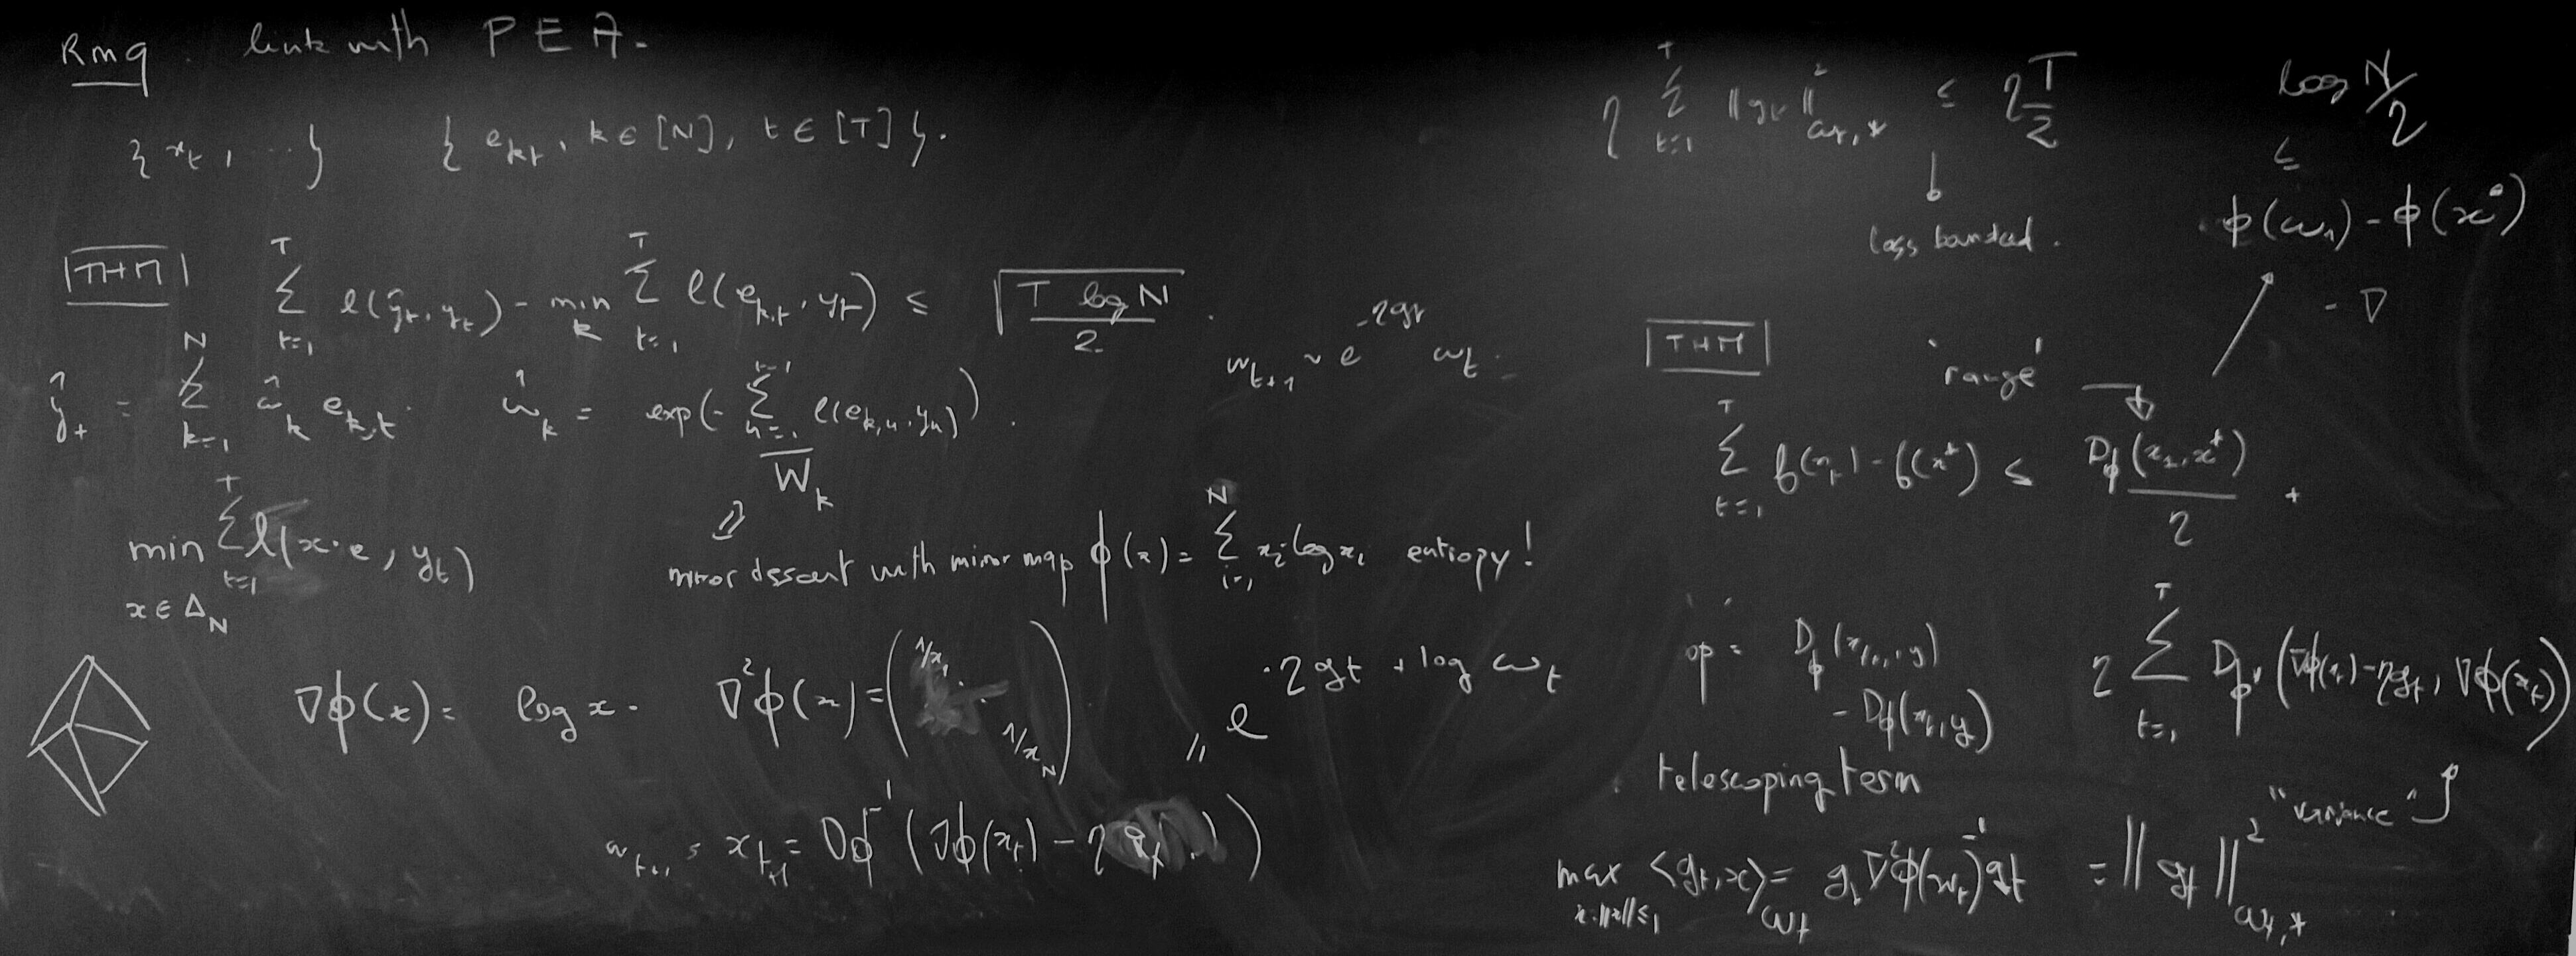 Rmq. link with PEA.
{x_t, ...} {e_{k,t}, k ∈ [N], t ∈ [T]}.
THM ∑_{t=1}^T ℓ(ŷ_t, y_t) - min_k ∑_{t=1}^T ℓ(e_{k,t}, y_t) ≤ √(T log N / 2).
ŷ_t = ∑_{k=1}^N ŵ_k e_{k,t}. ŵ_k = exp(-∑_{u=1}^{t-1} ℓ(e_{k,u}, y_u)) / W_k.
w_{t+1} ~ e^{-ηg_t} w_t.
min_{x ∈ Δ_N} ∑_{t=1}^T ℓ(x·e, y_t)
⇓
mirror descent with mirror map ϕ(x) = ∑_{i=1}^N x_i log x_i entropy!
∇ϕ(x) = log x. ∇²ϕ(x) = (1/x_1 ... 1/x_N)
= e^{-ηg_t + log w_t}
w_{t+1} = x_{t+1} = ∇ϕ^{-1}(∇ϕ(x_t) - ηg_t)
η ∑_{t=1}^T ||g_t||²_{w_t,*} ≤ η T/2
loss bounded.
log N/η
≤
ϕ(w_1) - ϕ(x*)
- ∇
THM 'range'
∑_{t=1}^T f(x_t) - f(x*) ≤ D_ϕ(x_1, x*)/η +
op = D_ϕ(x_{t+1}, y)
- D_ϕ(x_t, y)
telescoping term
η ∑_{t=1}^T D_{ϕ*}(∇ϕ(x_t) - ηg_t, ∇ϕ(x_t))
"variance"
max_{x: ||x|| ≤ 1} <g_t, x>_{w_t} = g_t ∇²ϕ(w_t)^{-1} g_t = ||g_t||²_{w_t,*}